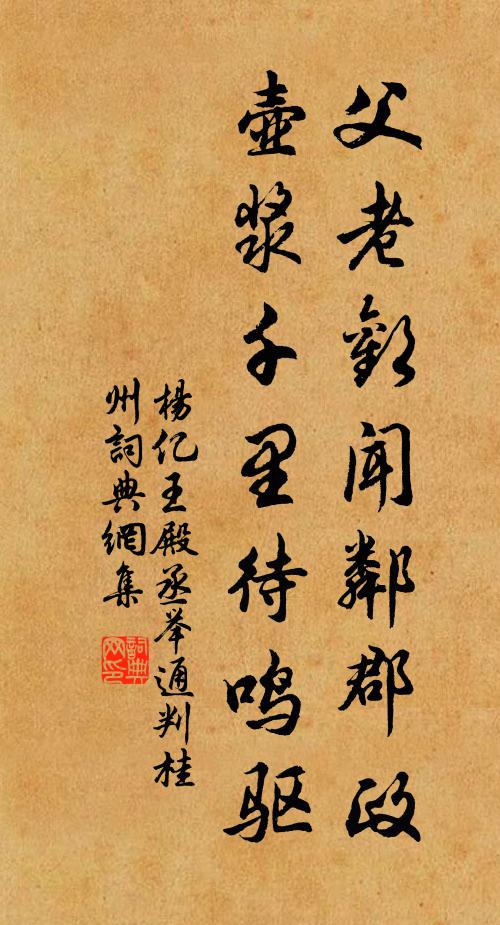 父老歡聞鄰郡政
壺漿千里待鳴驱
楊亿王殿丞举通判桂
州詞典網集
詞典
网印